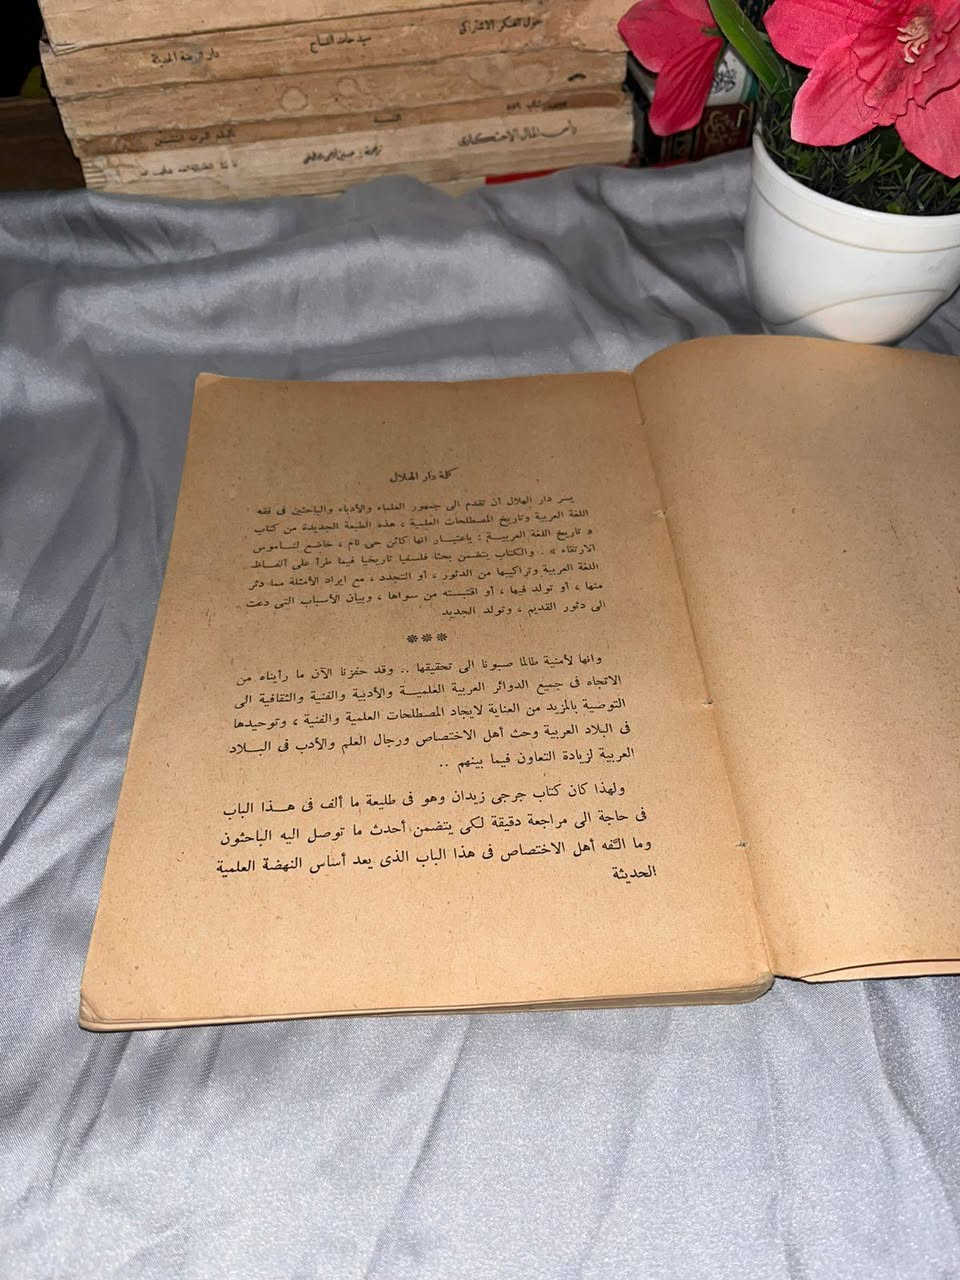 حول الفكر الاشتراكي
سيد حامد النساج
رأس المال الاحتكاري
كلمة دار الهلال
يسر دار الهلال أن تقدم الى جمهور العلماء والأدباء والباحثين فى فقه
اللغة العربية وتاريخ المصطلحات العلمية ، هذه الطبعة الجديدة من كتاب
« تاريخ اللغة العربيـة : باعتبـار انها كائن حى نام ، خاضع لنـاموس
الارتقاء » . والكتاب يتضمن بحثا فلسفيا تاريخيا فيما طرأ على ألفـاظ
اللغة العربية وتراكيبها من الدثور ، أو التجدد ، مع ايراد الأمثلة مما دثر
منها ، أو تولد فيها ، أو اقتبسته من سواها ، وبيان الأسباب التى دعت
الى دثور القديم ، وتولد الجديد
***
وانها لأمنية طالما صبونا الى تحقيقها .. وقد حفزنا الآن ما رأيناه من
الاتجاه فى جميع الدوائر العربية العلميـة والأدبية والفنية والثقافية الى
التوصية بالمزيد من العناية لايجاد المصطلحات العلمية والفنية ، وتوحيدها
فى البلاد العربية وحث أهل الاختصاص ورجال العلم والأدب فى البـلاد
العربية لزيادة التعاون فيما بينهم ..
ولهذا كان كتاب جرجى زيدان وهو فى طليعة ما ألف فى هـذا الباب
فى حاجة الى مراجعة دقيقة لكى يتضمن أحدث ما توصل اليه الباحثون
وما ألفه أهل الاختصاص فى هذا الباب الذى يعد أساس النهضة العلمية
الحديثة